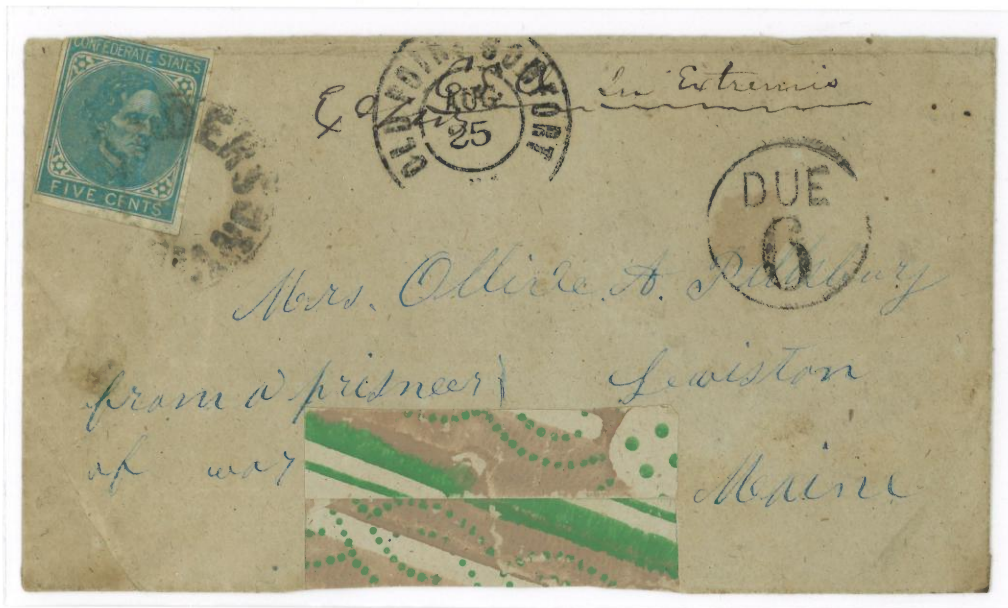 CONFEDERATE STATES
FIVE CENTS
OLD POINT COMFORT
AUG
25
In Extremis
DUE
6
Mrs. Ollivie. A. Pillsbury
from a prisneer
of war
Lewiston
Maine